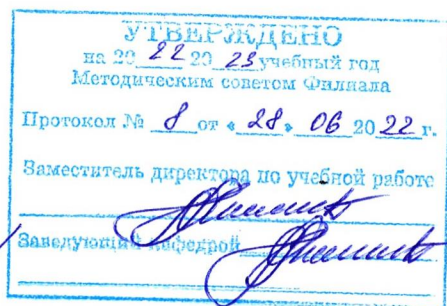 УТВЕРЖДЕНО
на 20 22 20 23 учебный год
Методическим советом Филиала
Протокол № 8 от « 28 » 06 20 22 г.
Заместитель директора по учебной работе
Заведующий кафедрой